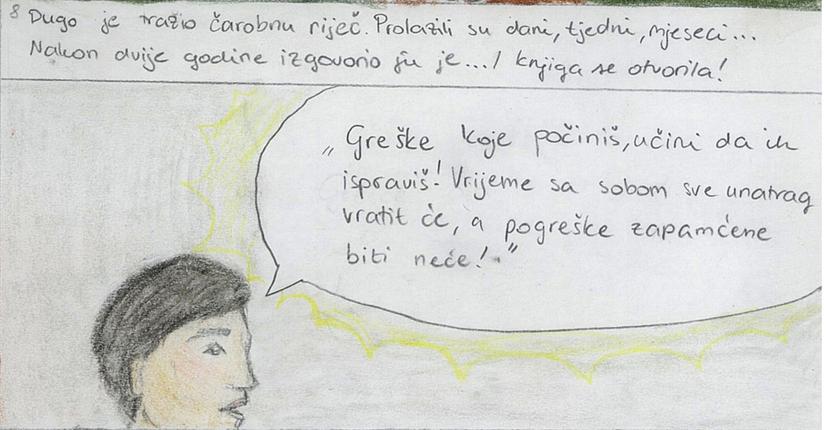 8 Dugo je tražio čarobnu riječ. Prolazili su dani, tjedni, mjeseci...
Nakon dvije godine izgovorio ju je... I knjiga se otvorila!
„Greške koje počiniš, učini da ih
ispraviš! Vrijeme sa sobom sve unatrag
vratit će, a pogreške zapamćene
biti neće!"